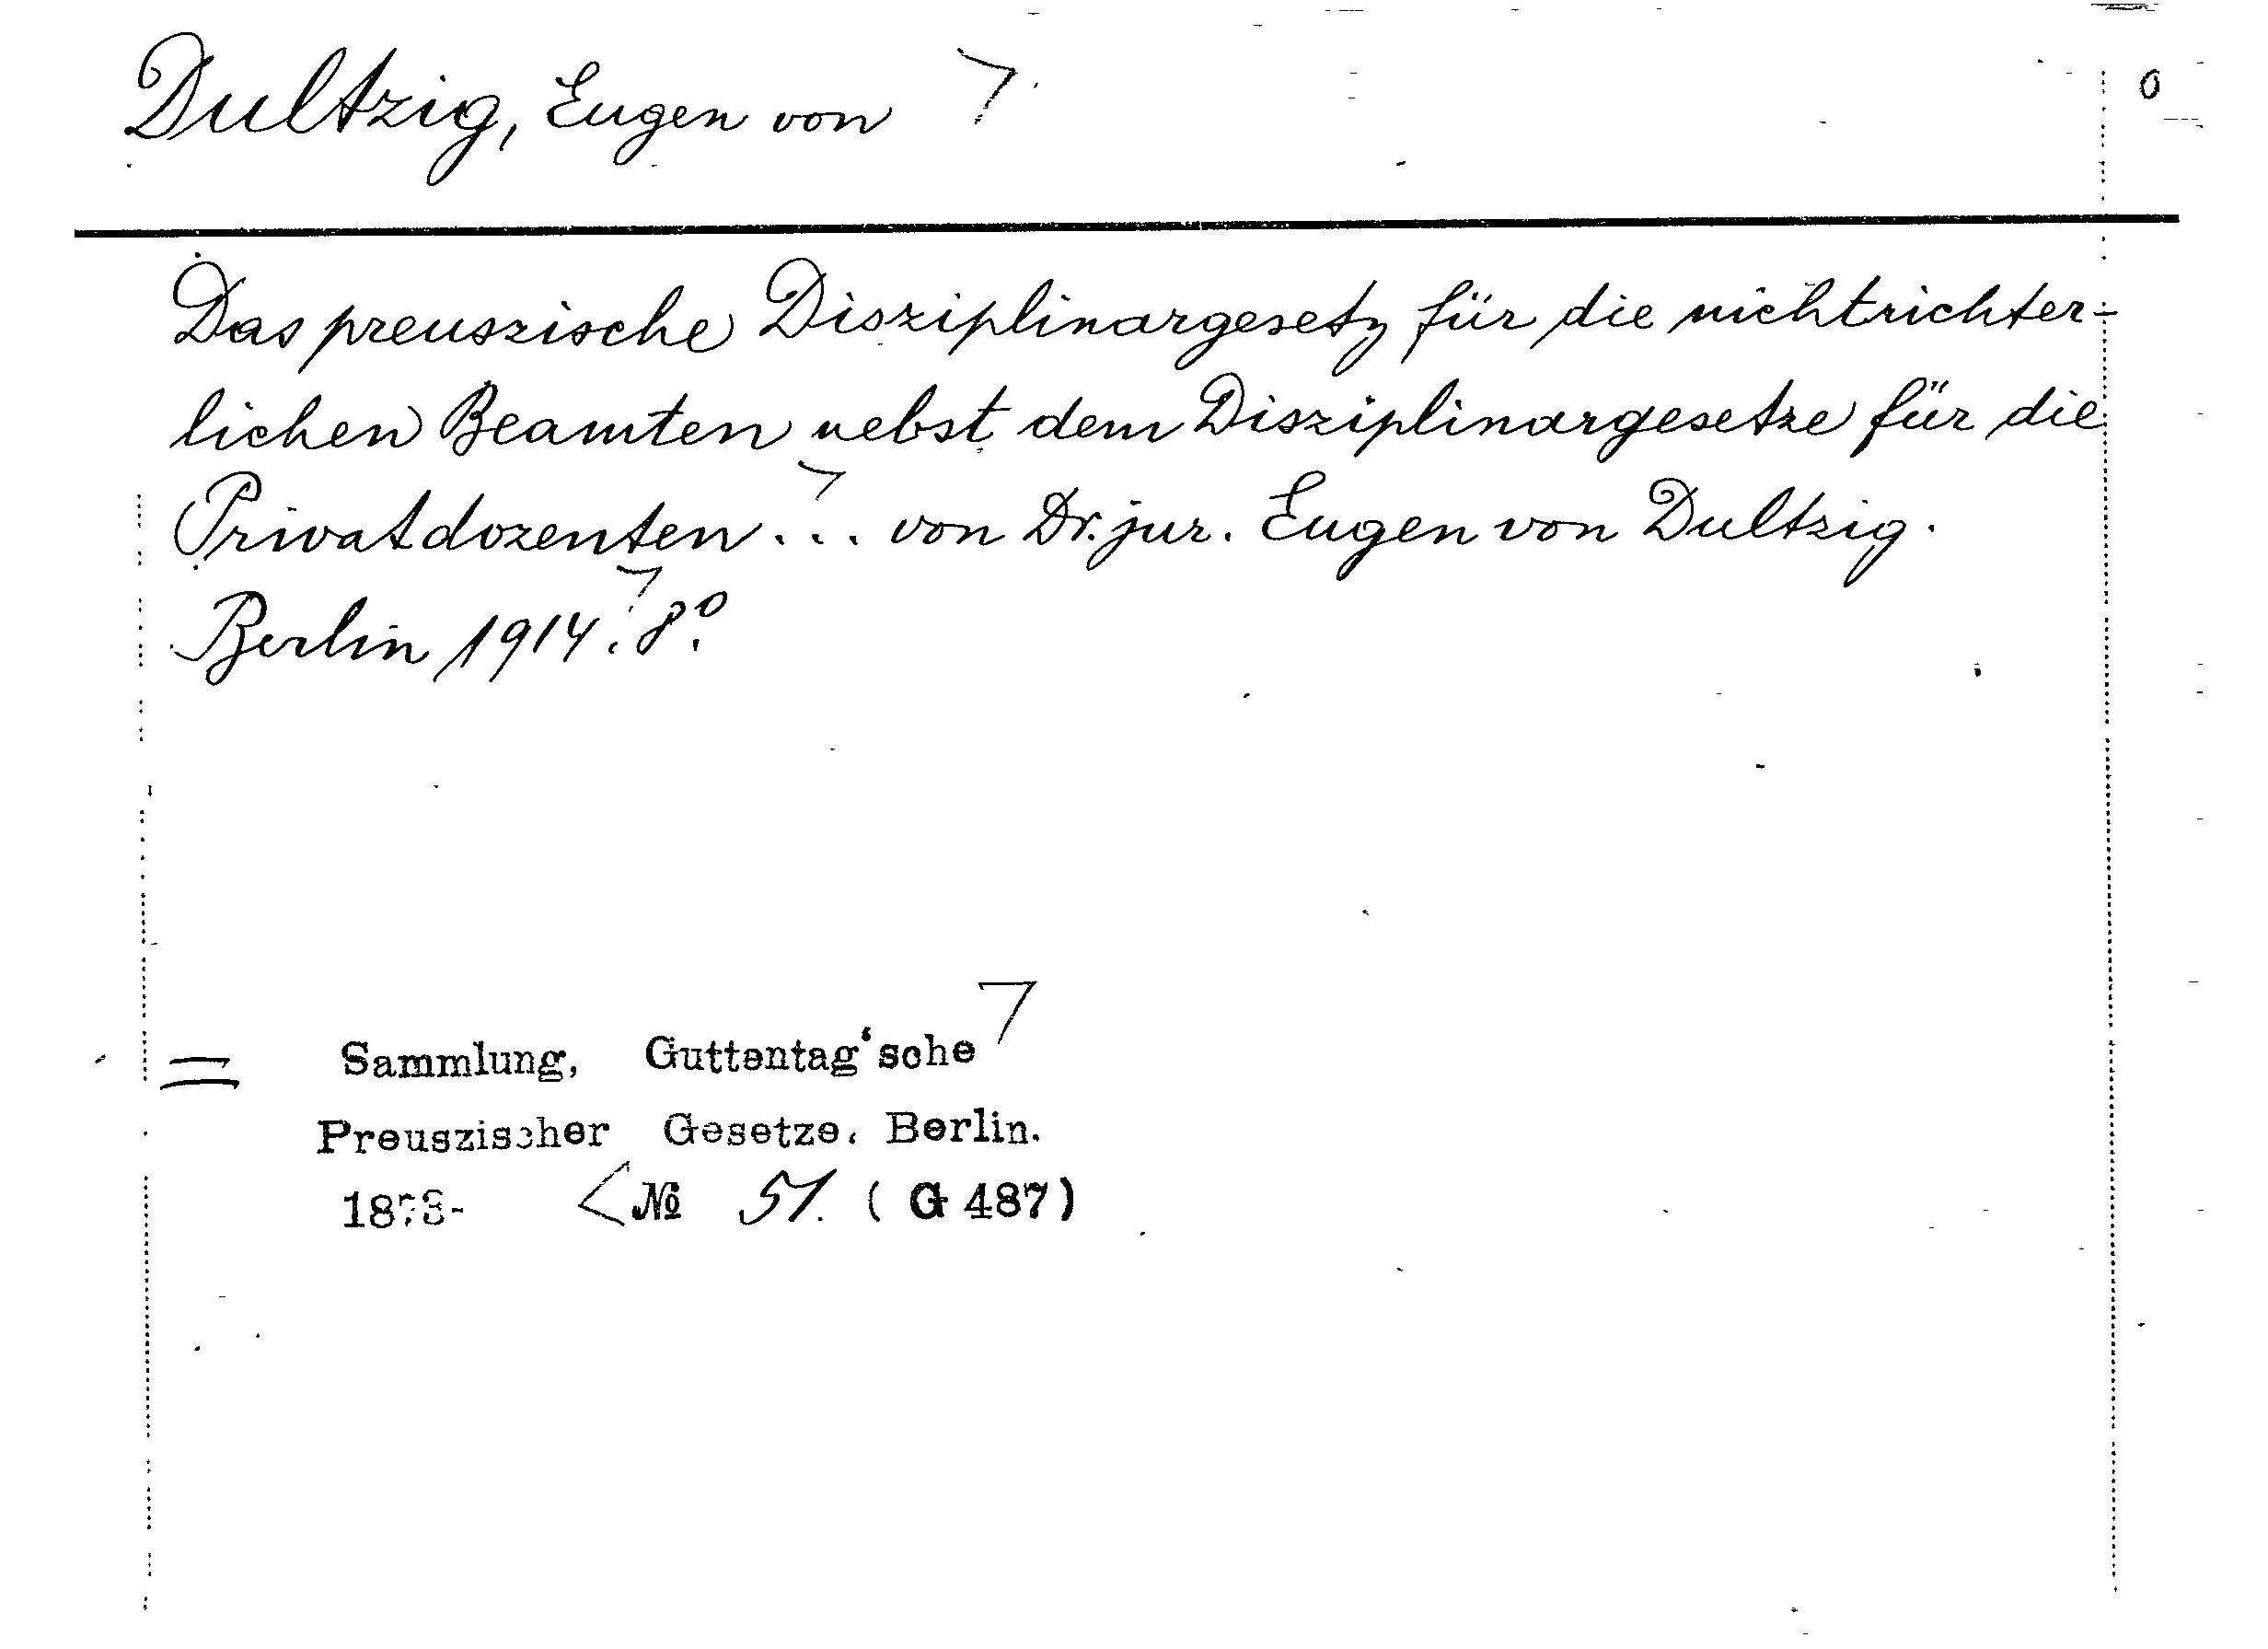 Dultzig, Eugen von
Das preuszische Disziplinargesetz für die nichtrichter-
lichen Beamten nebst dem Disziplinargesetze für die
Privatdozenten... von Dr. jur. Eugen von Dultzig.
Berlin 1914. 8º.
= Sammlung, Guttentag'sche
Preuszischer Gesetze. Berlin.
№ 51. (G 487)